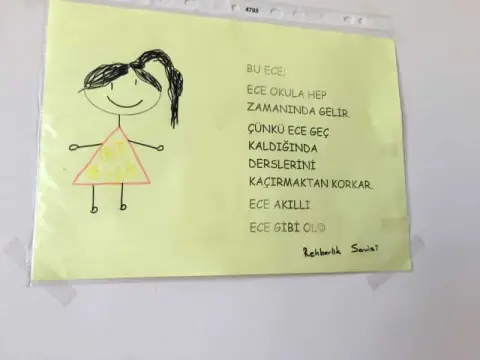 4793
BU ECE;
ECE OKULA HEP
ZAMANINDA GELİR.
ÇÜNKÜ ECE GEÇ
KALDIĞINDA
DERSLERİNİ
KAÇIRMAKTAN KORKAR.
ECE AKILLI
ECE GİBİ OL☺
Rehberlik Servisi